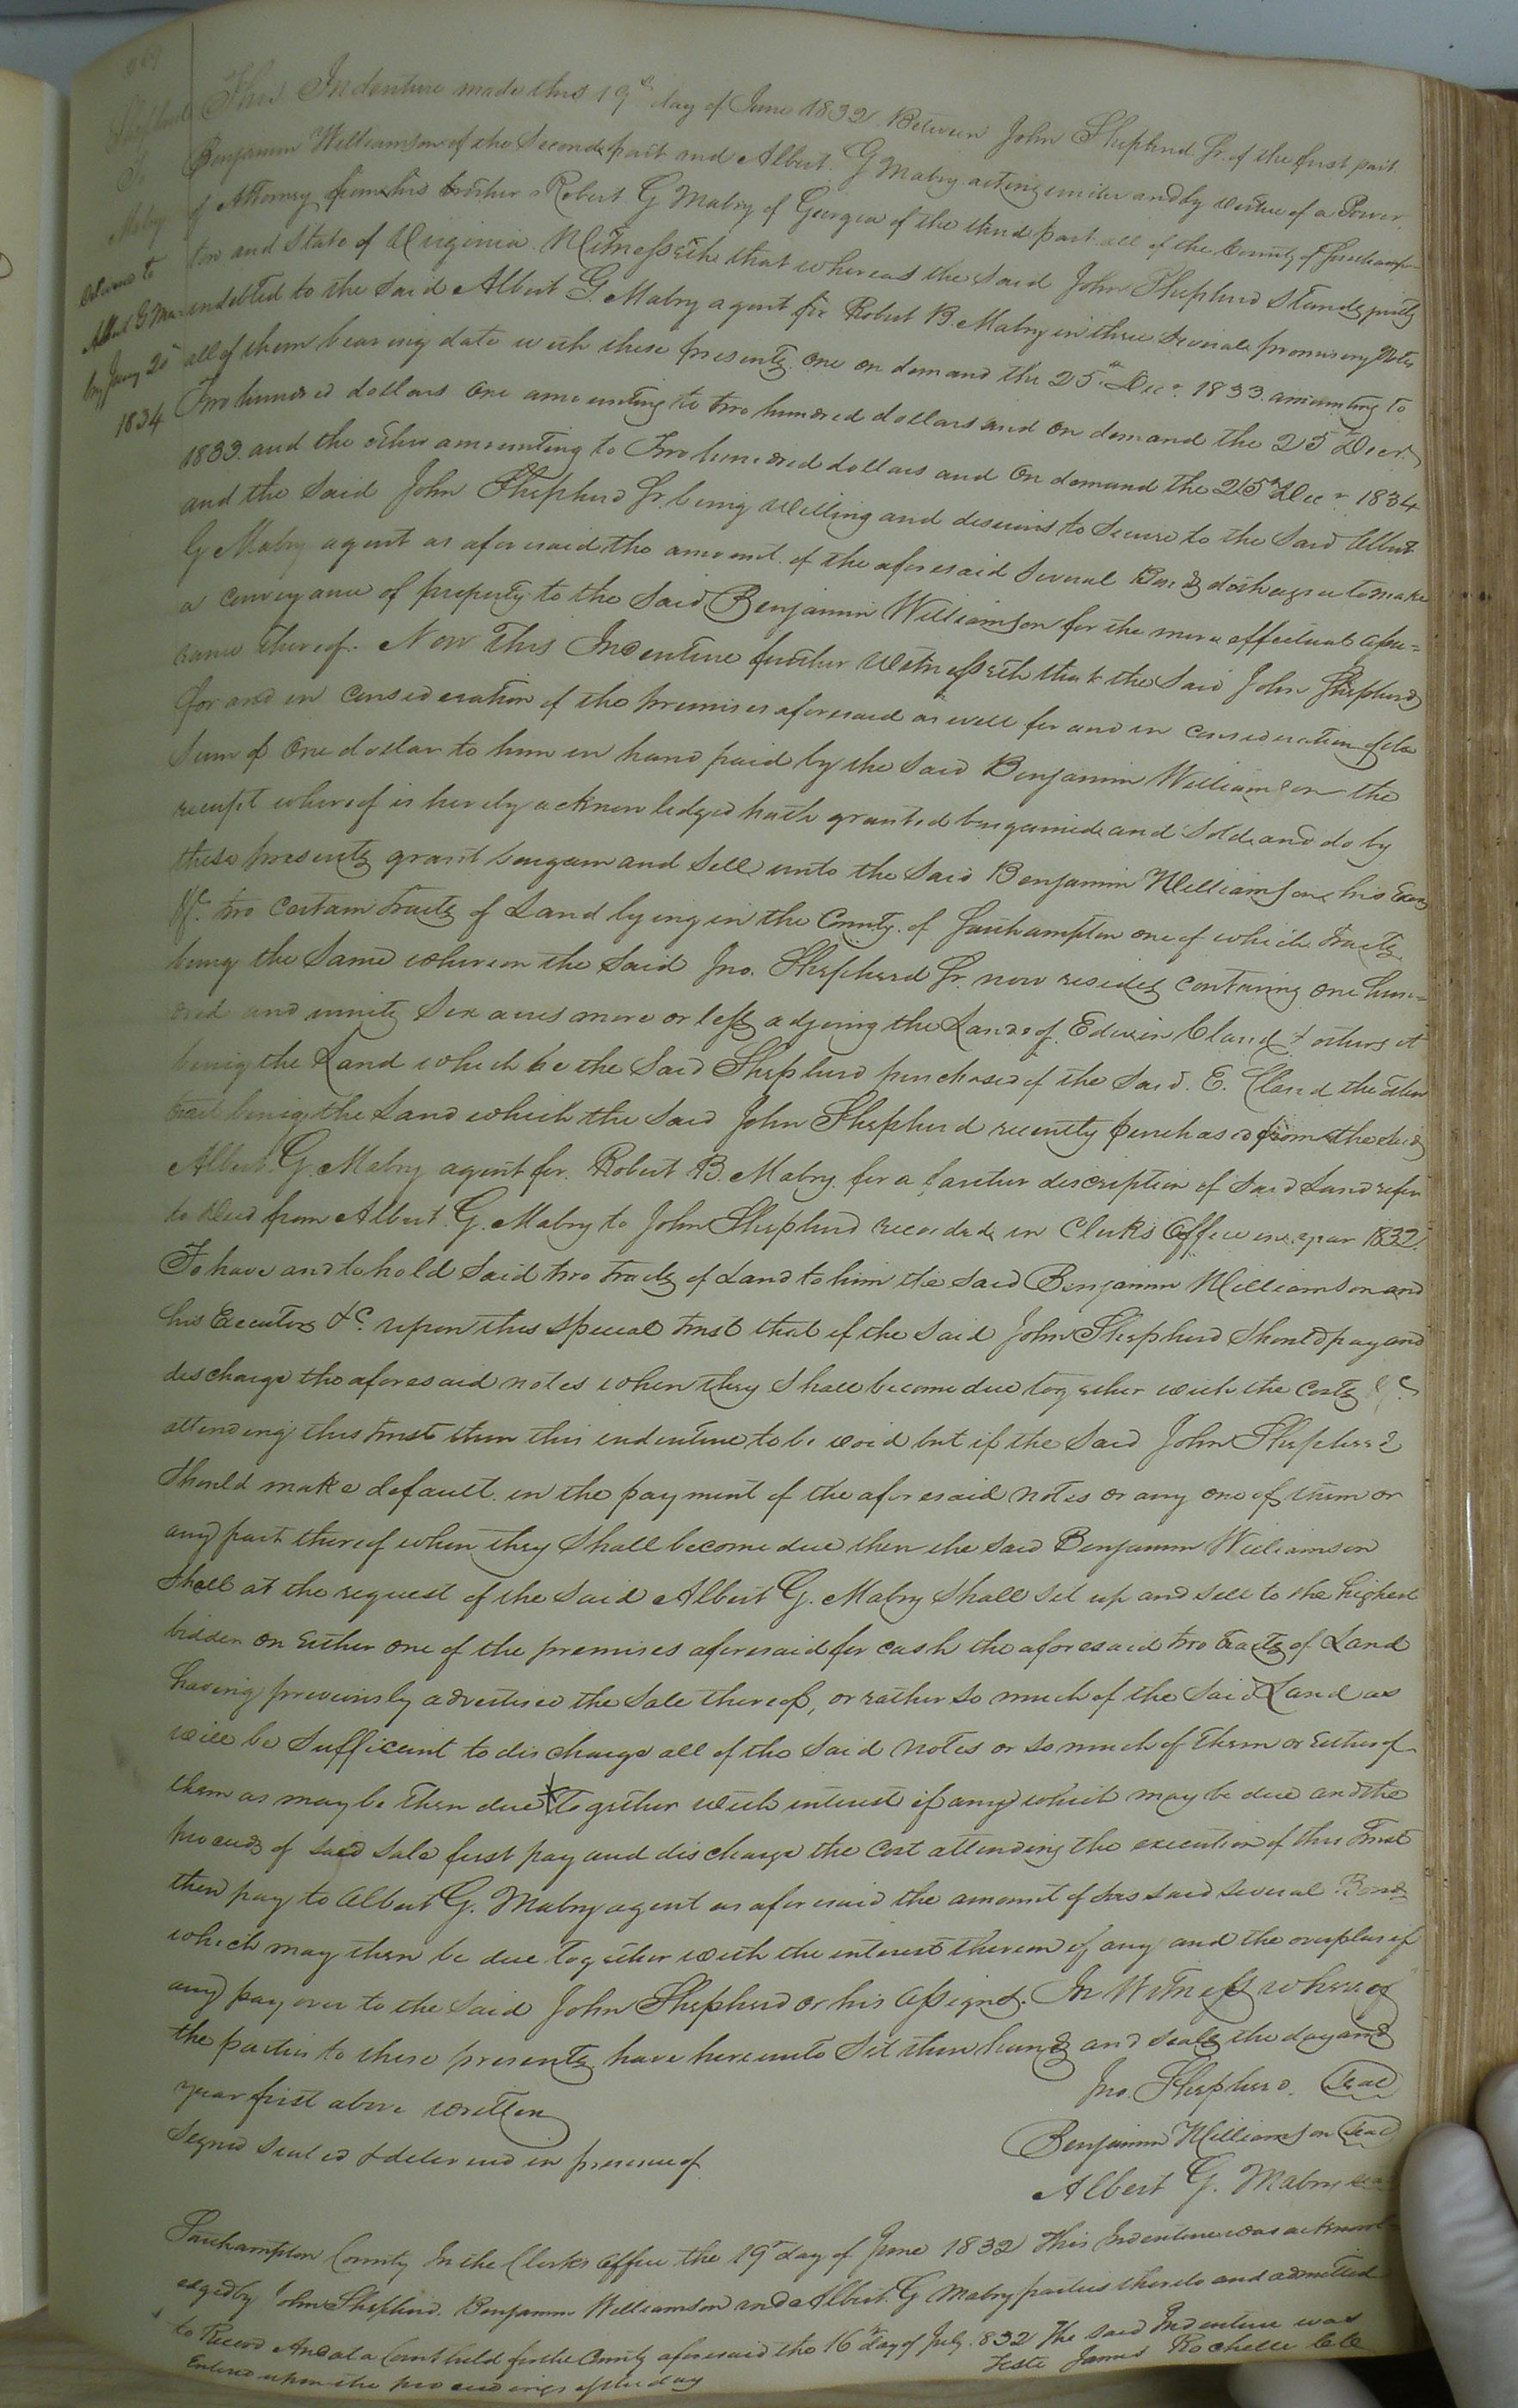 469
Shepherd
To
Mabry
Delivered to
Albert G Ma
bry Jany 20
1834
This Indenture made this 19th day of June 1832 Between John Shepherd Jr. of the first part
Benjamin Williamson of the Second part and Albert G Mabry acting under and by virtue of a Power
of Attorney from his brother Robert G Mabry of Georgia of the third part all of the County of Southamp-
ton and State of Virginia Witnesseth that whereas the said John Shepherd Stands justly
indebted to the Said Albert G. Mabry agent for Robert B. Mabry in three Several promissory Notes
all of them bearing date with these presents one on demand the 25th Decr. 1833. amounting to
Two hundred dollars one amounting to two hundred dollars and on demand the 25th Decr.
1833. and the other amounting to Two hundred dollars and on demand the 25th Decr. 1834
and the Said John Shepherd Jr. being Willing and desirous to Secure to the Said Albert
G Mabry agent as aforesaid the amount of the aforesaid Several Bonds doth agree to make
a conveyance of property to the Said Benjamin Williamson for the more effectual assu=
rance thereof. Now This Indenture further Witnesseth that the Said John Shepherd
for and in consideration of the premises aforesaid as well for and in consideration of the
Sum of One dollar to him in hand paid by the Said Benjamin Williamson the
receipt whereof is hereby acknowledged hath granted bargained and Sold and do by
these presents grant bargain and Sell unto the Said Benjamin Williamson his Exors
&c. two certain tracts of Land lying in the County of Southampton one of which tracts
being the Same whereon the Said Jno. Shepherd Jr. now resides containing one hun=
dred and ninety Six acres more or less adjoing the Lands of Edwin Claud & others it
being the Land which he the Said Shepherd purchased of the Said E. Claud the other
tract being the Land which the Said John Shepherd recently purchased from the Said
Albert G. Mabry agent for Robert B. Mabry for a farther discription of Said Land refer
to Deed from Albert G. Mabry to John Shepherd recorded in Clerks Office in year 1832.
To have and to hold Said two tracts of Land to him the Said Benjamin Williamson and
his Executors &c. upon this Special trust that if the Said John Shepherd Should pay and
discharge the aforesaid notes when they Shall become due together with the costs &c
attending this trust then this indenture to be void but if the Said John Shepherd
Should make default in the payment of the aforesaid notes or any one of them or
any part thereof when they Shall become due then the Said Benjamin Williamson
Shall at the request of the Said Albert G. Mabry Shall Set up and sell to the highest
bidder on Either one of the premises aforesaid for cash the aforesaid two tracts of Land
having previously advertised the Sale thereof, or rather So much of the Said Land as
will be Sufficient to discharge all of the Said notes or so much of them or Either of
them as may be then due * together with interest if any which may be due and the
proceeds of said Sale first pay and discharge the cost attending the execution of this Trust
then pay to Albert G. Mabry agent as aforesaid the amount of his said several Bonds
which may then be due together with the interest thereon if any and the overplus if
any pay over to the Said John Shepherd or his Assigns. In Witness whereof
the parties to these presents have hereunto Set their hands and seals the day and
year first above written
Jno. Shepherd. Seal
Signed Sealed & delivered in presence of
Benjamin Williamson Seal
Albert G. Mabry seal
Southampton County In the Clerks Office the 19th day of June 1832 This Indenture was acknowl-
edged by John Shepherd. Benjamin Williamson and Albert G Mabry parties thereto and admitted
to Record And at a Court held for the County aforesaid the 16th day of July 1832 The said Indenture was
Entered upon the proceedings of the day
Teste James Rochelle Clk